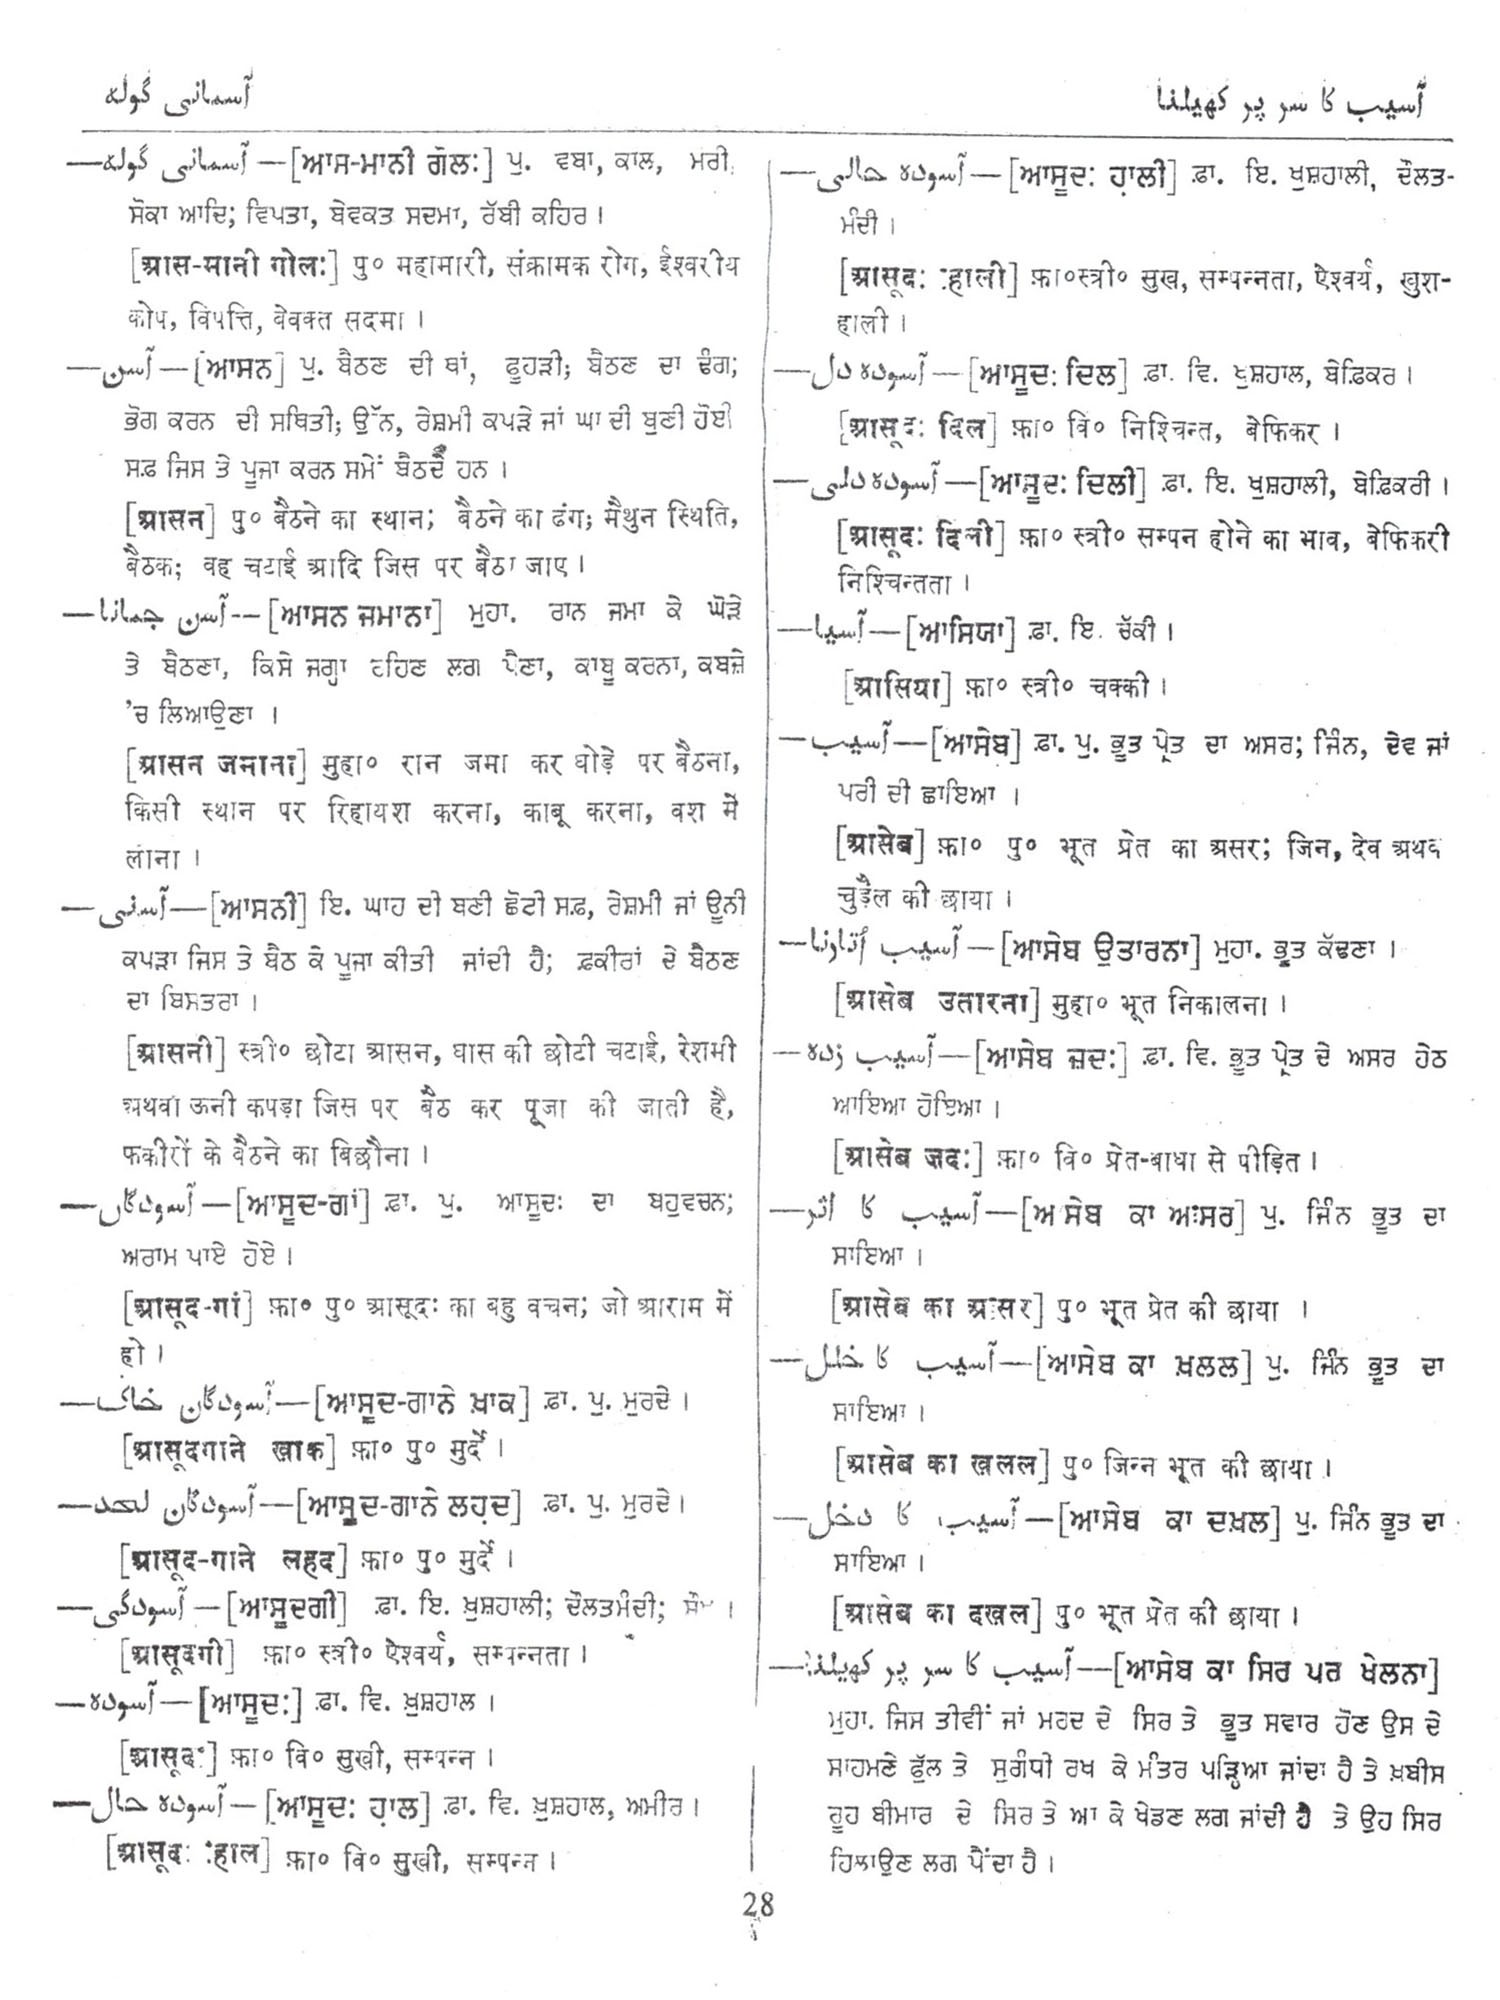 آسمانی گولہ
آسیب کا سر پر کھیلنا
—آسمانی گولہ—[ਆਸ-ਮਾਨੀ ਗੋਲ:] ਪੁ. ਵਬਾ, ਕਾਲ, ਮਰੀ
ਸੋਕਾ ਆਦਿ; ਵਿਪਤਾ, ਬੇਵਕਤ ਸਦਮਾ, ਰੱਬੀ ਕਹਿਰ ।
[आस-मानी गोल:] पु० महामारी, संक्रामक रोग, ईश्वरीय
कोप, विपत्ति, वेवक्त सदमा ।
—آسن—[ਆਸਨ] ਪੁ. ਬੈਠਣ ਦੀ ਥਾਂ, ਫੂਹੜੀ; ਬੈਠਣ ਦਾ ਢੰਗ;
ਭੋਗ ਕਰਨ ਦੀ ਸਥਿਤੀ; ਉੱਨ, ਰੇਸ਼ਮੀ ਕਪੜੇ ਜਾਂ ਘਾ ਦੀ ਬੁਣੀ ਹੋਈ
ਸਫ਼ ਜਿਸ ਤੇ ਪੂਜਾ ਕਰਨ ਸਮੇਂ ਬੈਠਦੇ ਹਨ ।
[आसन] पु० बैठने का स्थान; बैठने का ढंग; मैथुन स्थिति,
बैठक; वह चटाई आदि जिस पर बैठा जाए ।
—آسن جمانا—[ਆਸਨ ਜਮਾਨਾ] ਮੁਹਾ. ਰਾਨ ਜਮਾ ਕੇ ਘੋੜੇ
ਤੇ ਬੈਠਣਾ, ਕਿਸੇ ਜਗ੍ਹਾ ਰਹਿਣ ਲਗ ਪੈਣਾ, ਕਾਬੂ ਕਰਨਾ, ਕਬਜ਼ੇ
'ਚ ਲਿਆਉਣਾ ।
[आसन जमाना] मुहा० रान जमा कर घोड़े पर बैठना,
किसी स्थान पर रिहायश करना, काबू करना, वश में
लाना ।
—آسنی—[ਆਸਨੀ] ਇ. ਘਾਹ ਦੀ ਬਣੀ ਛੋਟੀ ਸਫ਼, ਰੇਸ਼ਮੀ ਜਾਂ ਊਨੀ
ਕਪੜਾ ਜਿਸ ਤੇ ਬੈਠ ਕੇ ਪੂਜਾ ਕੀਤੀ ਜਾਂਦੀ ਹੈ; ਫ਼ਕੀਰਾਂ ਦੇ ਬੈਠਣ
ਦਾ ਬਿਸਤਰਾ ।
[आसनी] स्त्री० छोटा आसन, घास की छोटी चटाई, रेशमी
अथवा ऊनी कपड़ा जिस पर बैठ कर पूजा की जाती है,
फकीरों के बैठने का बिछौना ।
—آسودگاں—[ਆਸੂਦ-ਗਾਂ] ਫ਼ਾ. ਪੁ. ਆਸੂਦ: ਦਾ ਬਹੁਵਚਨ;
ਅਰਾਮ ਪਾਏ ਹੋਏ ।
[आसूद-गां] फ़ा० पु० आसूद: का बहु वचन; जो आराम में
हो ।
—آسودگان خاک—[ਆਸੂਦ-ਗਾਨੇ ਖ਼ਾਕ] ਫ਼ਾ. ਪੁ. ਮੁਰਦੇ ।
[आसूदगाने खाक] फ़ा० पु० मुर्दे ।
—آسودگان لحد—[ਆਸੂਦ-ਗਾਨੇ ਲਹ਼ਦ] ਫ਼ਾ. ਪੁ. ਮੁਰਦੇ ।
[आसूद-गाने लहद] फ़ा० पु० मुर्दे ।
—آسودگی—[ਆਸੂਦਗੀ] ਫ਼ਾ. ਇ. ਖ਼ੁਸ਼ਹਾਲੀ; ਦੌਲਤਮੰਦੀ; ।
[आसूदगी] फ़ा० स्त्री० ऐश्वर्य, सम्पन्नता ।
—آسودہ—[ਆਸੂਦ:] ਫ਼ਾ. ਵਿ. ਖ਼ੁਸ਼ਹਾਲ ।
[आसूद:] फ़ा० वि० सुखी, सम्पन्न ।
—آسودہ حال—[ਆਸੂਦ: ਹ਼ਾਲ] ਫ਼ਾ. ਵਿ. ਖ਼ੁਸ਼ਹਾਲ, ਅਮੀਰ ।
[आसूद: :हाल] फ़ा० वि० सुखी, सम्पन्न ।
—آسودہ حالی—[ਆਸੂਦ: ਹ਼ਾਲੀ] ਫ਼ਾ. ਇ. ਖ਼ੁਸ਼ਹਾਲੀ, ਦੌਲਤ-
ਮੰਦੀ ।
[आसूद: :हाली] फ़ा०स्त्री० सुख, सम्पन्नता, ऐश्वर्य, खुश-
हाली ।
—آسودہ دل—[ਆਸੂਦ: ਦਿਲ] ਫ਼ਾ. ਵਿ. ਖ਼ੁਸ਼ਹਾਲ, ਬੇਫ਼ਿਕਰ ।
[आसूद: दिल] फ़ा० वि० निश्चिन्त, बेफिकर ।
—آسودہ دلی—[ਆਸੂਦ: ਦਿਲੀ] ਫ਼ਾ. ਇ. ਖ਼ੁਸ਼ਹਾਲੀ, ਬੇਫ਼ਿਕਰੀ ।
[आसूद: दिली] फ़ा० स्त्री० सम्पन होने का भाव, बेफिकरी
निश्चिन्तता ।
—آسیا—[ਆਸਿਯਾ] ਫ਼ਾ. ਇ. ਚੱਕੀ ।
[आसिया] फ़ा० स्त्री० चक्की ।
—آسیب—[ਆਸੇਬ] ਫ਼ਾ. ਪੁ. ਭੂਤ ਪ੍ਰੇਤ ਦਾ ਅਸਰ; ਜਿੰਨ, ਦੇਵ ਜਾਂ
ਪਰੀ ਦੀ ਛਾਇਆ ।
[आसेब] फ़ा० पु० भूत प्रेत का असर; जिन, देव अथव
चुड़ैल की छाया ।
—آسیب اُتارنا—[ਆਸੇਬ ਉਤਾਰਨਾ] ਮੁਹਾ. ਭੂਤ ਕੱਢਣਾ ।
[आसेब उतारना] मुहा० भूत निकालना ।
—آسیب زدہ—[ਆਸੇਬ ਜ਼ਦ:] ਫ਼ਾ. ਵਿ. ਭੂਤ ਪ੍ਰੇਤ ਦੇ ਅਸਰ ਹੇਠ
ਆਇਆ ਹੋਇਆ ।
[आसेब ज़द:] फ़ा० वि० प्रेत-बाधा से पीड़ित ।
—آسیب کا اثر—[ਅਸੇਬ ਕਾ ਅ:ਸਰ] ਪੁ. ਜਿੰਨ ਭੂਤ ਦਾ
ਸਾਇਆ ।
[आसेब का अ:सर] पु० भूत प्रेत की छाया ।
—آسیب کا خلل—[ਆਸੇਬ ਕਾ ਖ਼ਲਲ] ਪੁ. ਜਿੰਨ ਭੂਤ ਦਾ
ਸਾਇਆ ।
[आसेब का खलल] पु० जिन्न भूत की छाया ।
—آسیب کا دخل—[ਆਸੇਬ ਕਾ ਦਖ਼ਲ] ਪੁ. ਜਿੰਨ ਭੂਤ ਦਾ
ਸਾਇਆ ।
[आसेब का दखल] पु० भूत प्रेत की छाया ।
—آسیب کا سر پر کھیلنا—[ਆਸੇਬ ਕਾ ਸਿਰ ਪਰ ਖੇਲਨਾ]
ਮੁਹਾ. ਜਿਸ ਤੀਵੀਂ ਜਾਂ ਮਰਦ ਦੇ ਸਿਰ ਤੇ ਭੂਤ ਸਵਾਰ ਹੋਣ ਉਸ ਦੇ
ਸਾਹਮਣੇ ਫੁੱਲ ਤੇ ਸੁਗੰਧੀ ਰਖ ਕੇ ਮੰਤਰ ਪੜ੍ਹਿਆ ਜਾਂਦਾ ਹੈ ਤੇ ਖ਼ਬੀਸ
ਰੂਹ ਬੀਮਾਰ ਦੇ ਸਿਰ ਤੇ ਆ ਕੇ ਖੇਡਣ ਲਗ ਜਾਂਦੀ ਹੈ ਤੇ ਉਹ ਸਿਰ
ਹਿਲਾਉਣ ਲਗ ਪੈਂਦਾ ਹੈ ।
28